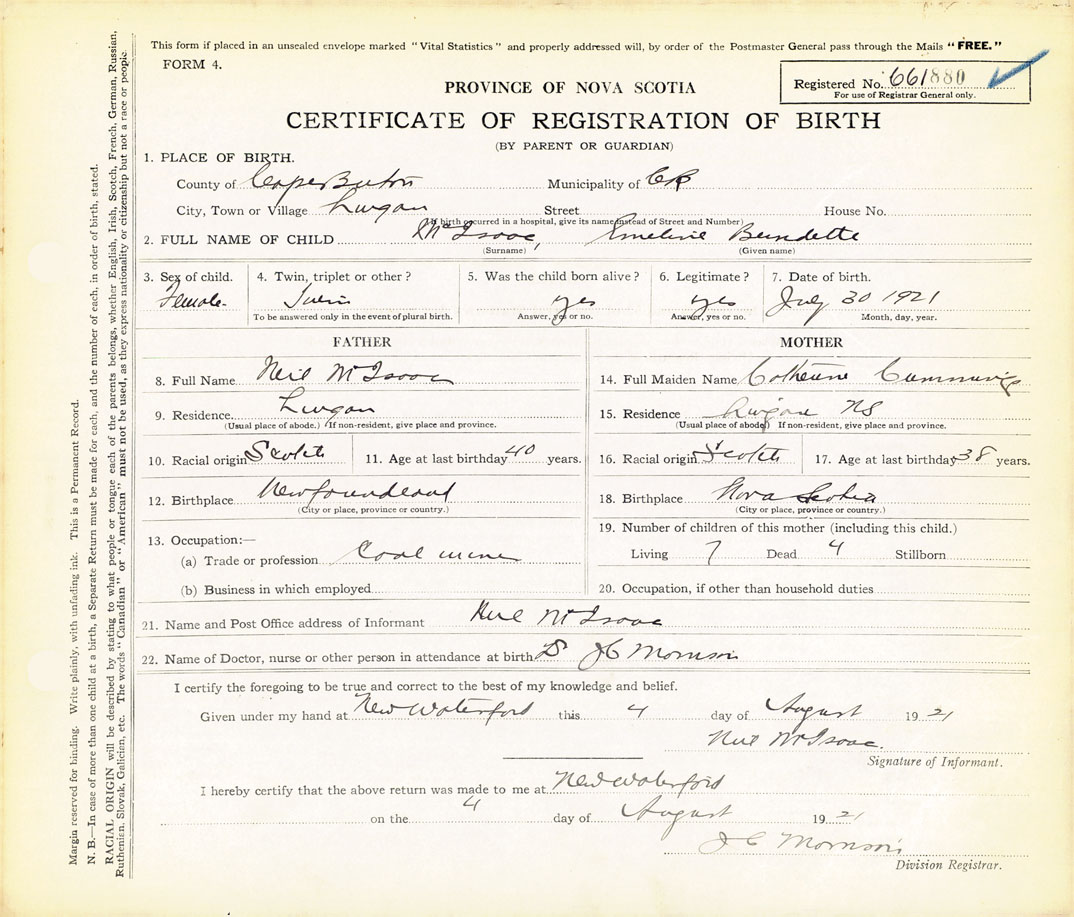 This form if placed in an unsealed envelope marked "Vital Statistics" and properly addressed will, by order of the Postmaster General pass through the Mails "FREE."
FORM 4.
Registered No. 661880
For use of Registrar General only.
PROVINCE OF NOVA SCOTIA
CERTIFICATE OF REGISTRATION OF BIRTH
(BY PARENT OR GUARDIAN)
1. PLACE OF BIRTH.
County of Cape Breton Municipality of CB
City, Town or Village Lingan Street House No.
(If birth occurred in a hospital, give its name instead of Street and Number)
2. FULL NAME OF CHILD McIsaac, Emeline Bernadette
(Surname) (Given name)
3. Sex of child. 4. Twin, triplet or other? 5. Was the child born alive? 6. Legitimate? 7. Date of birth.
Female Twin yes yes July 30 1921
To be answered only in the event of plural birth. Answer, yes or no. Answer, yes or no. Month, day, year.
FATHER
8. Full Name Neil McIsaac
9. Residence. Lingan
(Usual place of abode.) If non-resident, give place and province.
10. Racial origin Scotch 11. Age at last birthday 40 years.
12. Birthplace Newfoundland
(City or place, province or country.)
13. Occupation:—
(a) Trade or profession Coal miner
(b) Business in which employed
MOTHER
14. Full Maiden Name Catherine Cummings
15. Residence Lingan NS
(Usual place of abode) If non-resident, give place and province.
16. Racial origin Scotch 17. Age at last birthday 38 years.
18. Birthplace Nova Scotia
(City or place, province or country.)
19. Number of children of this mother (including this child.)
Living 7 Dead 4 Stillborn
20. Occupation, if other than household duties
21. Name and Post Office address of Informant Neil McIsaac
22. Name of Doctor, nurse or other person in attendance at birth Dr J C Morrison
I certify the foregoing to be true and correct to the best of my knowledge and belief.
Given under my hand at New Waterford this 4 day of August 19 21
Neil McIsaac.
Signature of Informant.
I hereby certify that the above return was made to me at New Waterford
on the 4 day of August 19 21
J C Morrison
Division Registrar.
Margin reserved for binding. Write plainly, with unfading ink. This is a Permanent Record.
N. B.—In case of more than one child at a birth, a Separate Return must be made for each, and the number of each, in order of birth, stated.
RACIAL ORIGIN will be described by stating to what people or tongue each of the parents belongs, whether English, Irish, Scotch, French, German, Russian,
Ruthenian, Slovak, Galician, etc. The words "Canadian" or "American" must not be used, as they express nationality or citizenship but not a race or people.